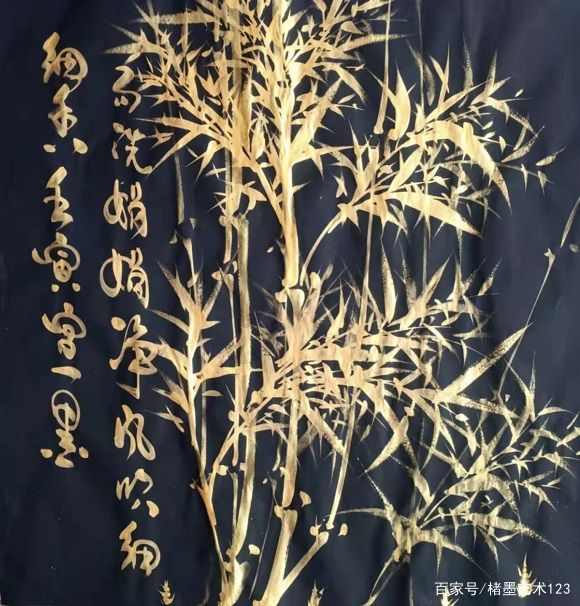 雨洗娟娟净风吹细
细香 壬寅 一墨
百家号/楮墨艺术123